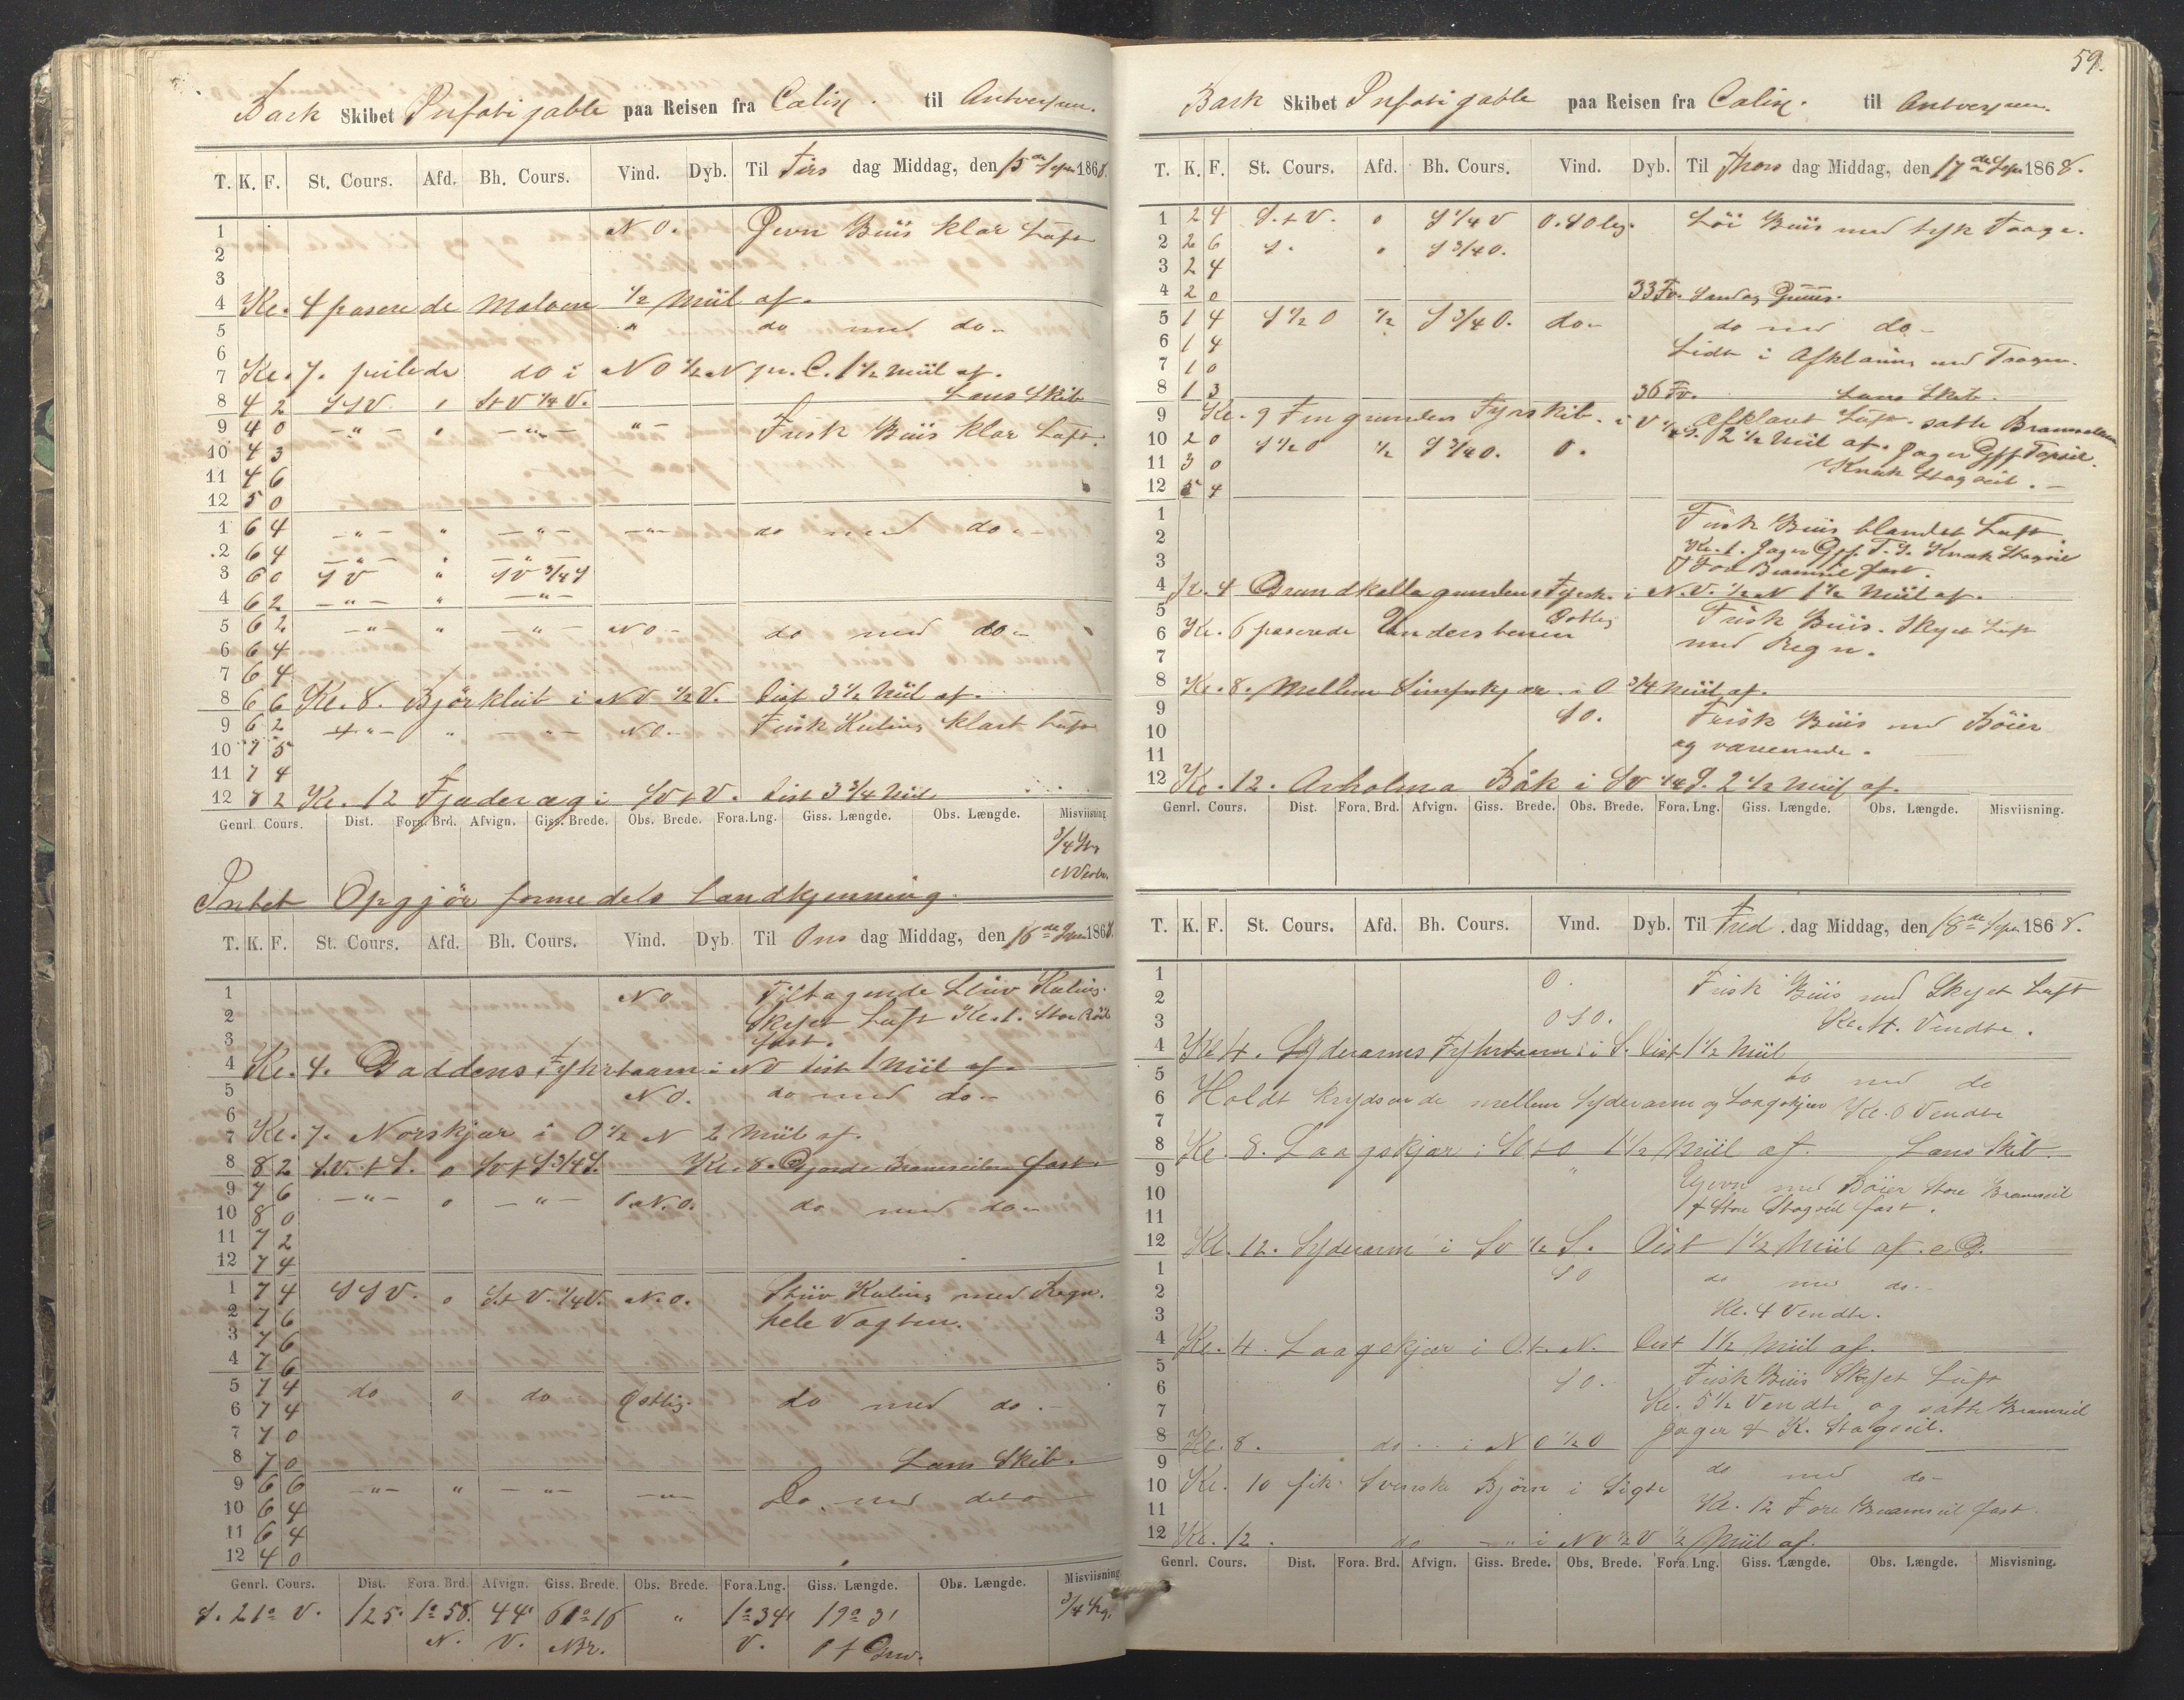 Bark Skibet Infatigable paa Reisen fra Calix. til Antverpen.
T. K. F. St. Cours. Afd. Bh. Cours. Vind. Dyb. Til Tirs dag Middag, den 15de Sept. 1868.
1 N O. Jevn Biis klar Luft
2
3
4 Kl. 4 paserede Maloen 1/2 Miil af.
5 " do med do
6
7 Kl. 7. peilede do i NO 1/2 N pr. C. 1 1/2 Miil af.
8 4 2 SSV. " St V 1/4 V. Lans Skib
9 4 0 - " - " - " - " - Frisk Biis klar Luft.
10 4 3
11 4 6
12 5 0
1 6 4 - " - " - " - - " - do med do
2 6 4 - " - " - " -
3 6 0 SV " SV 3/4 S
4 6 2 - " - " - " -
5 6 2 - " - " - " - N O - do med do
6 6 4
7 6 4
8 6 6 Kl. 8. Bjørklub i NV 1/2 V. Dist 3 1/2 Miil af.
9 6 2 - " - " - " - N O - Frisk Kuling klart Luft
10 7 5
11 7 4
12 8 2 Kl. 12 Fjaderæg i SV t V. Dist 3 3/4 Miil
Genrl. Cours. Dist. Fora. Brd. Afvign. Giss. Brede. Obs. Brede. Fora. Lng. Giss. Længde. Obs. Længde. Misviisning
3/4 Str
N Vestv.
Intet Opgjör formedels Landkjenning.
T. K. F. St. Cours. Afd. Bh. Cours. Vind. Dyb Til Ons dag Middag, den 16de Sept. 1868.
1 N O Tiltagende Stiiv Kuling.
2 Skyet Luft Kl. 1. Store Röil
3 fast.
4 Kl. 4. Gaddens Fyhrtaarn i NV dist 1 Miil af.
5 N O. do med do
6
7 Kl. 7. Norskjær i O 1/2 N 2 Miil af.
8 8 2 S.V. t S. o SV t S 3/4 S. Kl. 8. Gjorde Bramseilene fast.
9 7 6 - " - o - " - N.O. do med do
10 8 0
11 7 2
12 7 4
1 7 4 SSV. o St V. 1/4 V. N.O. Stiiv Kuling med Regn.
2 7 6 hele Vagten.
3 7 6
4 7 6
5 7 4 do o do Östlig. do med do.
6 7 4
7 7 0
8 7 0 Lans Skib.
9 6 6 - " - " - " - - " - Do. med deto
10 6 4
11 6 4
12 4 0
Genrl. Cours. Dist. Fora. Brd. Afvign. Giss. Brede. Obs. Brede. Fora. Lng. Giss. Længde. Obs. Længde. Misviisning
S. 21° V. 125. 1° 58. 44' 61° 16 " 1° 34' 19° 3' 3/4 Str.
N. V. NBr. V. O f Grw.
59.
Bark Skibet Infatigable paa Reisen fra Calix. til Antverpen.
T. K. F. St. Cours. Afd. Bh. Cours. Vind. Dyb. Til Thors dag Middag, den 17de Sept. 1868.
1 2 4 S. t V. o S 1/4 V O. SOlig. Löi Biis med tyk Taage.
2 2 6 S. o S 3/4 O.
3 2 4
4 2 0 33 Fv. Sandag Gruus.
5 1 4 S 1/2 O 1/2 S 3/4 O. do do med do
6 1 4 Lidt i Afklaring med Taagen.
7 1 0
8 1 3 36 Fv. Lans Skib.
9 Kl. 9 Fingrunden Fyrskib. i V 1/2 S. 2 1/2 Miil af. Afklaret Luft. satte Bramseilene
10 2 0 S 1/2 O 1/2 S 3/4 O. O. Jager Gff Topseil.
11 3 0 Knæk Stagseil.
12 5 4
1 Frisk Biis blandet Luft
2 Kl. 1. Jager Gff. T.S. Knæk Stagseil
3 & For Bramseil fast.
4 Kl. 4 Grundkallegrundens Fyrsk. i N.V. 1/2 N 1 1/2 Miil af.
5 Östlig Frisk Biis. Skyet Luft
6 Kl. 6 paserede Understenen med Regn.
7
8 Kl. 8. Mellem Simpnkjær i O 3/4 Miil af.
9 SO. Frisk Biis med Böier
10 og varierende.
11
12 Kl. 12. Arholma Båk i SV 1/4 S. 2 1/2 Miil af.
Genrl. Cours. Dist. Fora. Brd. Afvign. Giss. Brede. Obs. Brede. Fora. Lng. Giss. Længde. Obs. Længde. Misviisning.
T. K. F. St. Cours. Afd. Bh. Cours. Vind. Dyb. Til Fred. dag Middag, den 18de Sept. 1868.
1 O. Frisk Biis med Skyet Luft
2
3 OSO. Kl. 4. Vendte.
4 Kl 4. Syderarmes Fyhrtaarn i S. Dist 1 1/2 Miil
5 do med do
6 Holdt krydsende mellem Syderarm og Laagskjær Kl. 6 Vendte
7
8 Kl. 8. Laagskjær i SO t O 1 1/2 Miil af. Lans Skib.
9 " Jevn med Böier Store Bramseil
10 & Store Stagseil fast.
11
12 Kl. 12. Syderarm i SV 1/2 S. Dist 1 1/2 Miil af.
1 SO do med do
2
3 Kl. 4 Vendte.
4 Kl. 4. Laagskjær i O.t.N. Dist 1 1/2 Miil af.
5 Frisk Biis Skyet Luft
6 SO. Kl. 5 1/2 Vendte og satte Bramseil
7 Jager & K. Stagseil.
8 Kl. 8. do i NO 1/2 O
9 do med do
10 Kl. 10 fik Svenske Bjørn i Sigte
11 Kl. 12 Fore Bramseil fast.
12 Kl. 12. do - " i NV 1/2 V 1/2 Miil af.
Genrl. Cours. Dist. Fora. Brd. Afvign. Giss. Brede. Obs. Brede. Fora. Lng. Giss. Længde. Obs. Længde. Misvisning.